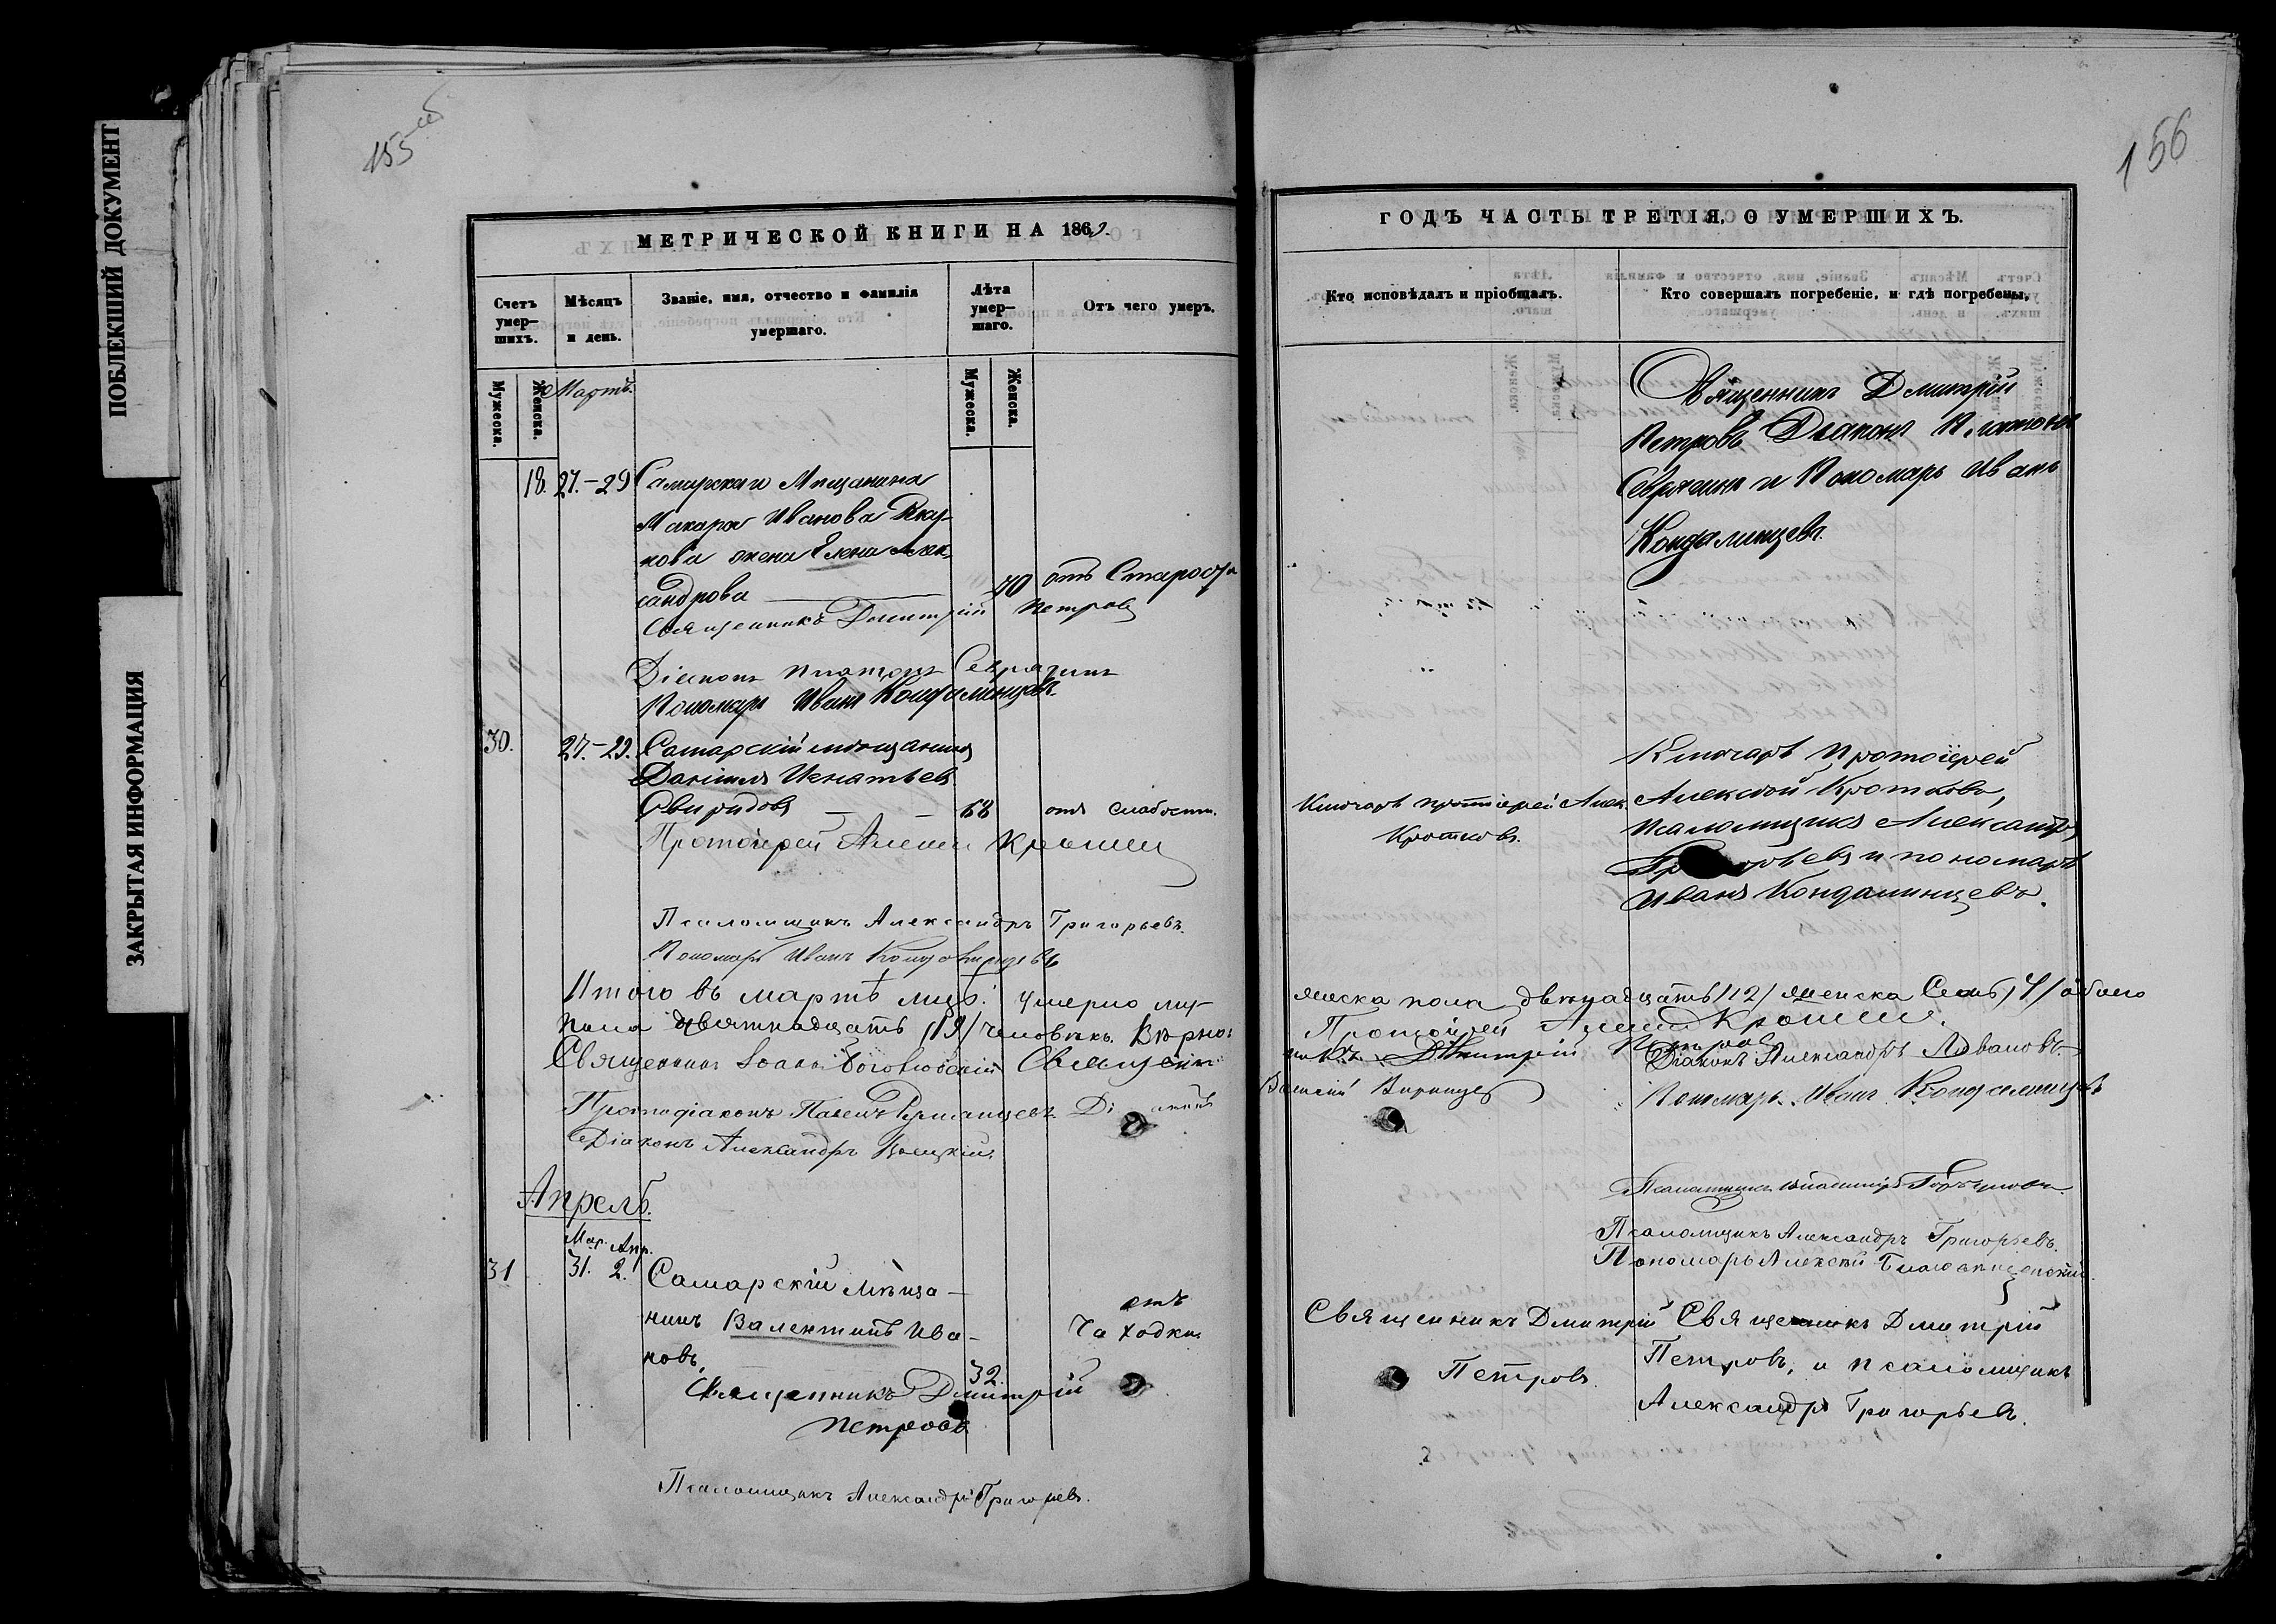 ПОБЛЕКШИЙ ДОКУМЕНТ
ЗАКРЫТАЯ ИНФОРМАЦИЯ
155 об
МЕТРИЧЕСКОЙ КНИГИ НА 1869.
Счетъ умер-шихъ.
Мѣсяцъ и день.
Званіе, имя, отчество и фамилія умершаго.
Лѣта умер-шаго.
Отъ чего умеръ.
Мужеска.
Женска.
Мартъ.
Мужеска.
Женска.
18. 27.-29 Самарскаго Мѣщанина
Макара Иванова
жена Елена Алек-
сандрова 70 отъ Старости
Священникъ Дмитрій Петровъ
Діаконъ Платонъ Севрюгинъ
Пономарь Иванъ Кондалинцевъ.
30. 27.-29. Самарскій мѣщанинъ
Даніилъ Игнатьевъ
Свиридовъ 68 отъ слабости.
Протоіерей Алексій Кротков
Псаломщикъ Александръ Григорьевъ.
Пономарь Иванъ Кондалинцевъ
Итого въ мартѣ мцѣ умерло му-
пола девятнадцать /19/ человѣкъ. Вѣрно:
Священникъ Іоаннъ Боголюбскій Священ
Протодіаконъ Павелъ Румянцевъ Діаконъ
Діаконъ Александръ
Апрель.
Мар. Апр.
31 31. 2. Самарскій мѣща-
нинъ Валентинъ Ива-
новъ. 32. отъ Чаходки
Священникъ Дмитрій
Петровъ
Псаломщикъ Александръ Григорьевъ.
156
ГОДЪ ЧАСТЬ ТРЕТІЯ, О УМЕРШИХЪ.
Кто исповѣдалъ и пріобщалъ.
Кто совершалъ погребеніе, и гдѣ погребены.
Священникъ Дмитрій
Петровъ Діаконъ Платонъ
Севрюгинъ и Пономарь Иванъ
Кондалинцевъ.
Ключарь протоіерей Алек.
Кротковъ.
Ключарь Протоіерей
Алексѣй Кротковъ,
псаломщикъ Александръ
Григорьевъ и пономарь
Иванъ Кондалинцевъ.
жеска пола двѣнадцать /12/ женска Семь /7/ обоего
Протоіерей Алексій Кротков.
никъ Дмитрій Петровъ
Діаконъ Александръ Ливановъ.
Василій
Пономарь Иванъ Кондалинцевъ
Псаломщикъ Владиміръ
Псаломщикъ Александръ Григорьевъ.
Пономарь Алексѣй Благовѣщенскій.
Священникъ Дмитрій
Петровъ.
Священникъ Дмитрій
Петровъ, и псаломщикъ
Александръ Григорьевъ.